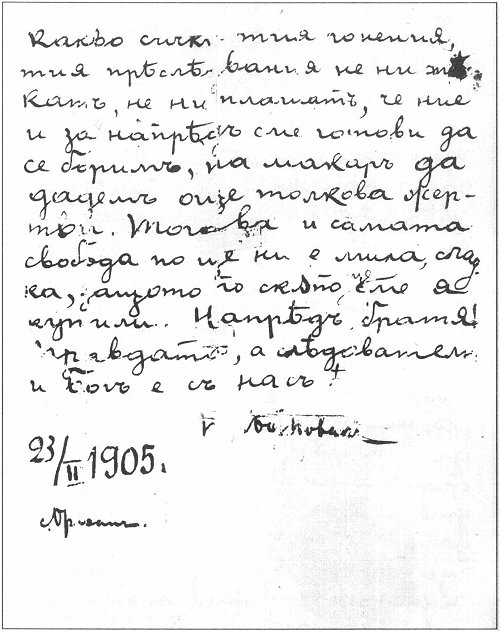 Какво сички тия гонения,
тия прѣслѣдвания не ни
катъ, не ни плашатъ, че ние
и за напрѣдъ сме готови да
се боримъ, па макаръ да
дадемъ още толкова жер-
тви. Тогова и самата
свобода по ще ни е мила, слад-
ка, защото по скѫпо ще сме я
купили. Напрѣдъ, братя!
Правдата, а слѣдователн
и Богъ е съ насъ!
23/II 1905.